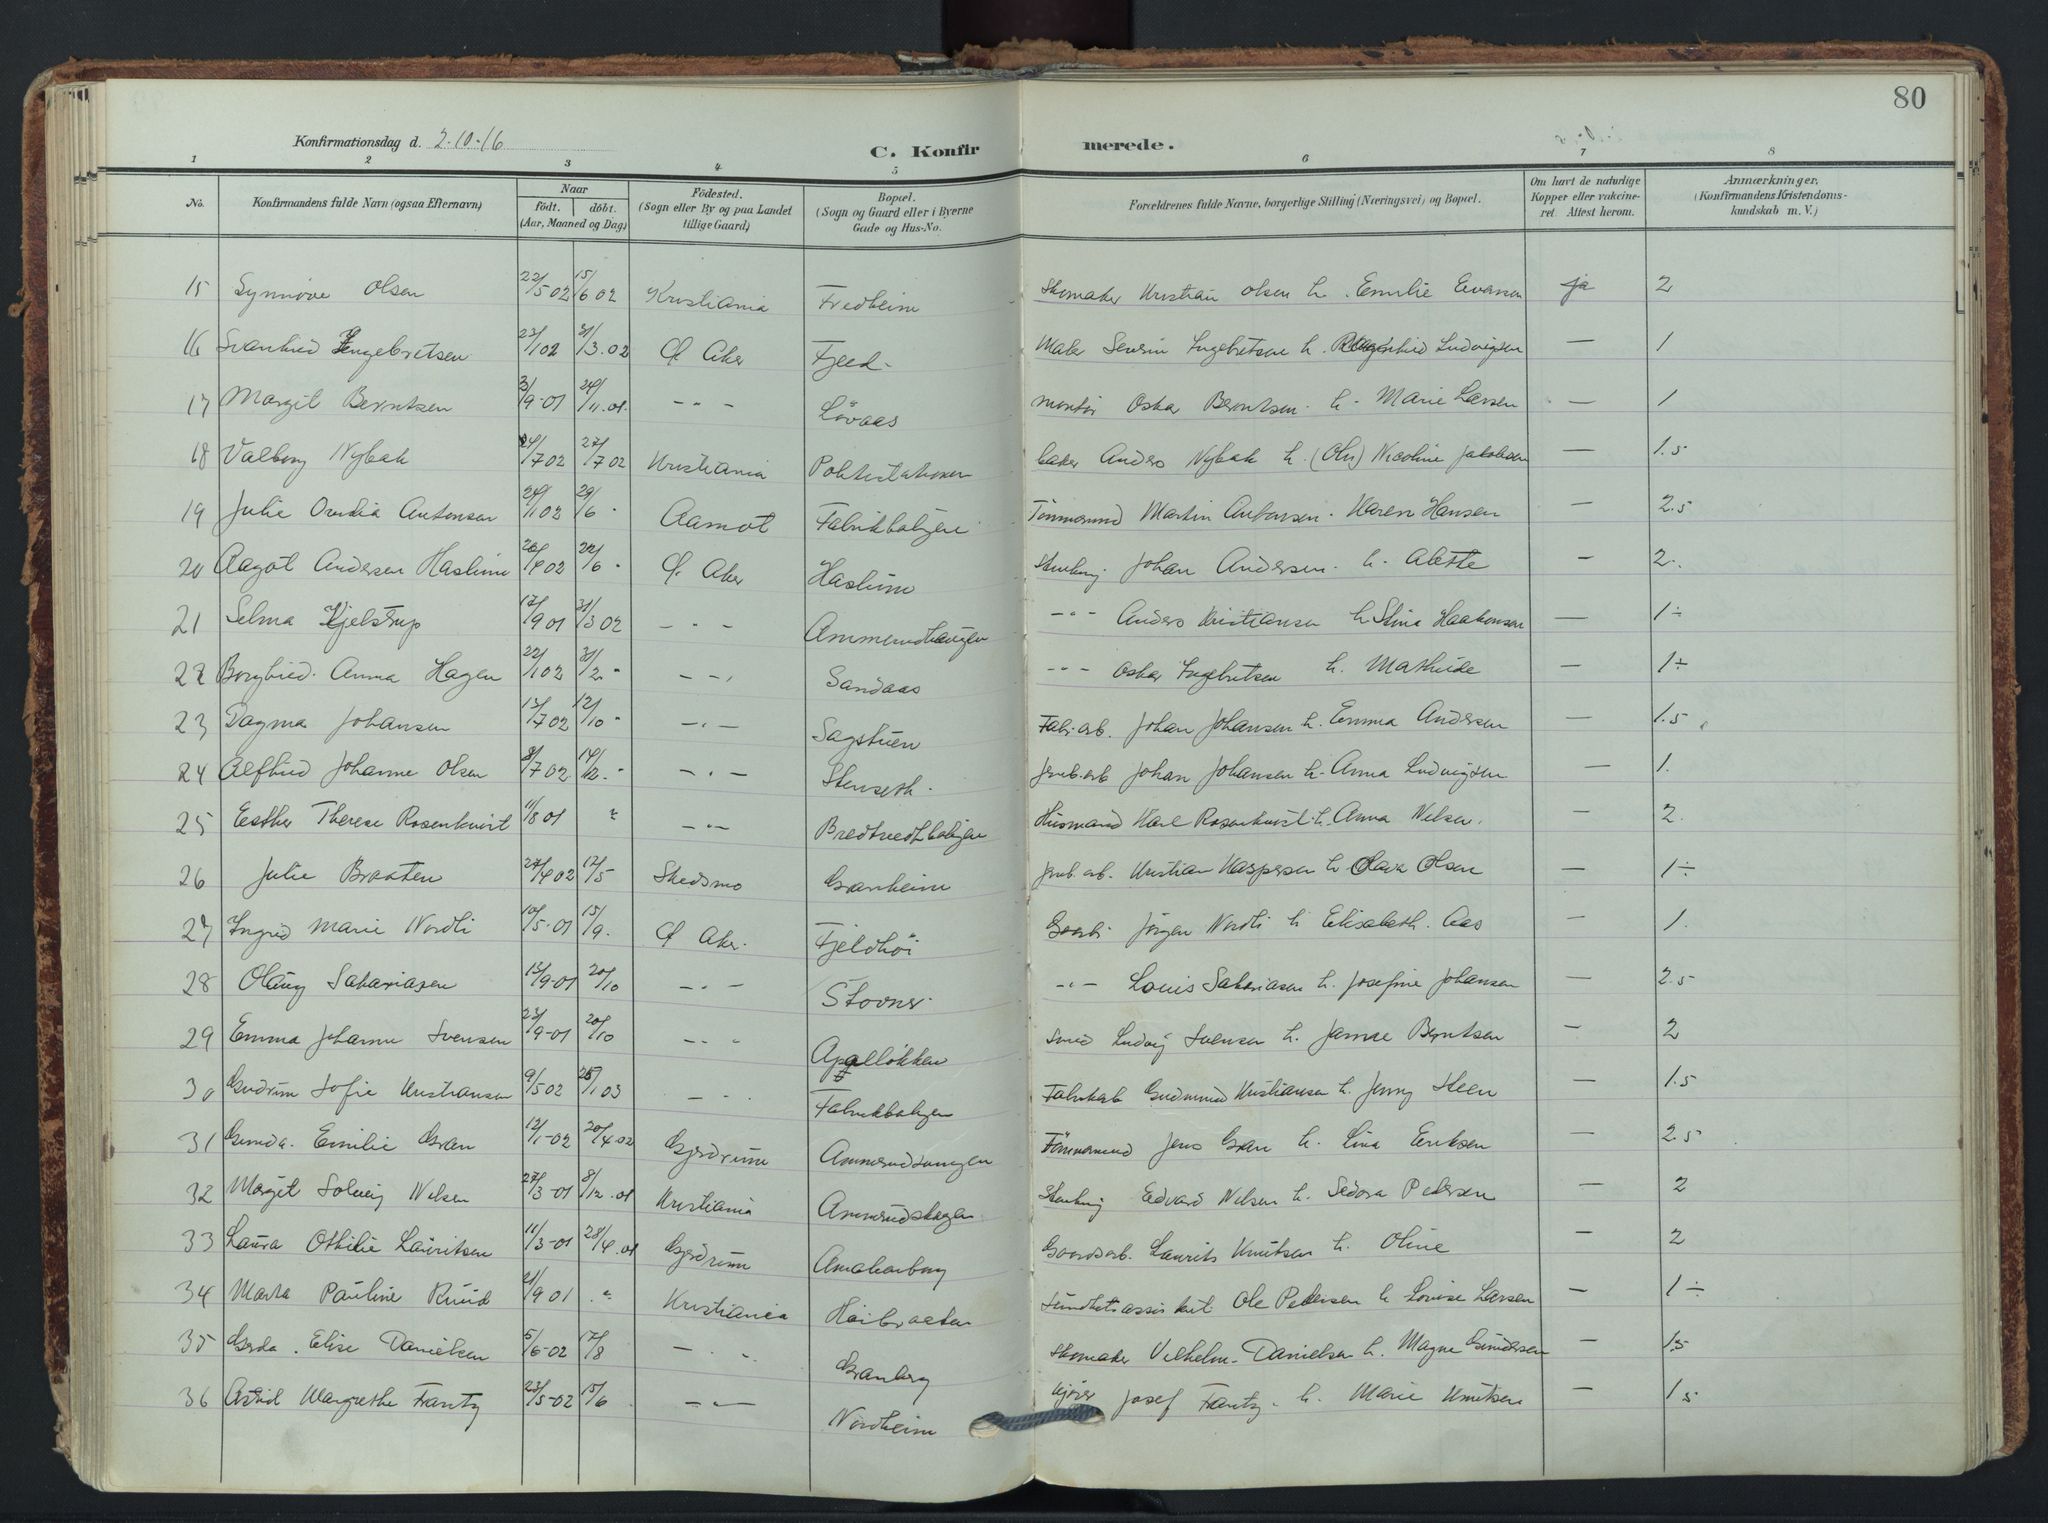 80
Konfirmationsdag d. 2-10-16
C. Konfirmerede.
1 2 3 4 5 6 7 8
No. Konfirmandens fulde Navn (ogsaa Efternavn) Naar født. døbt. (Aar, Maaned og Dag) Födested. (Sogn eller By og paa Landet tillige Gaard) Bopæl. (Sogn og Gaard eller i Byerne Gade og Hus-No. Forældrenes fulde Navne, borgerlige Stilling (Næringsvei) og Bopæl. Om havt de naturlige Kopper eller vakcineret Attest herom. Anmærkninger, (Konfirmandens Kristendomskundskab m. V.)
15 Synnöve Olsen 22/5 02 15/6 02 Kristiania Fredheim Skomaker Kristian Olsen h. Emilie ja 2
16 Svanhild Ingebretsen 23/1 02 31/3.02 Aker Maler Severin Ingebretsen h. Ludvigsen — 1
17 Margit Berntsen 3/9-01 24/11.01 - " - Lövaas montör Oskar Berntsen h. Marie Larsen — 1
18 Valborg Nybak 24/7 02 27/7 02 Kristiania Politistationen Anders Nybak h. Nicoline Jakobsen — 1.5
19 Julie Ovidia Antonsen 24/1 02 29/6 " Aamot Fabrikboligen Tömmermd Martin Antonsen. Karen Hansen — 2.5
20 Aagot Andersen Haslum 20/4 02 22/6 " Aker Haslum Johan Andersen h. Alette — 2.
21 Selma Kjelstrup 17/9 01 31/3 02 - " - Ammerudhaugen - " - Anders Kristiansen h Stina Haakonsen — 1÷
22 Borghild Anna Hagen 22/1 02 31/2 " - " - Sandaas - " - Oskar Ingebretsen h. Mathilde — 1÷
23 Dagma Johansen 13/7 02 12/10 " - " - Sagstuen Fabr. arb. Johan Johansen h. Emma Andersen — 1.5
24 Alfhild Johanne Olsen 8/7 02 14/12 " - " - Stenseth. Jernb. arb Johan Johansen h. Anna Ludvigsen — 1.
25 Esther Therese Rosenkvist 11/8 01 " - " - Bredtvedtboligen Husmand Karl Rosenkvist h. Anna Nilsen. — 2.
26 Julie Braaten 27/4 02 17/5 Skedsmo Granheim Jernb. arb. Kristian Kaspersen h Olava Olsen — 1÷
27 Ingrid Marie Nordli 10/5-01 15/9. Aker. Fjeldhöi Jörgen Nordli h Elisabeth Aas — 1.
28 Olaug Sakariasen 13/9-01 20/10 - " - Stovner - " - Louis Sakariasen h. Josefine Johansen — 2.5
29 Emma Johanne Svensen 23/9-01 20/10 - " - Apalløkken Smed Ludvig Svensen h. Berntsen — 2
30 Gudrun Sofie Kristiansen 9/5 02 25/1 03 - " - Fabrikboligen Fabrikarb Gudmund Kristiansen h. Jenny Steen — 1.5
31 Gunda Emilie Gran 12/1-02 20/4 02 Gjerdrum Tömmermd Jens Gran h. Lina Eriksen — 2.5
32 Margit Solveig Nilsen 27/3-01 8/12.01 Kristiania Ammerudshagen Edvard Nilsen h. Sedora Pedersen — 2
33 Laura Othilie Lauritsen 11/3-01 28/4.01 Gjerdrum Amalienborg Gaardsarb. Laurits Knutsen h. Oline — 2
34 Marta Pauline Ruud 21/9 01 " Kristiania Höibraaten Ole Pedersen h Lovise Larsen — 1÷
35 Gerda Elise Danielsen 5/6-02 17/8 - " - Granberg Skomaker Vilhelm Danielsen h. Magna Gundersen — 1.5
36 Astrid Margrethe Frantz 23/5-02 15/6 - " - Nordheim Josef Frantz h. Marie Knutsen — 1.5